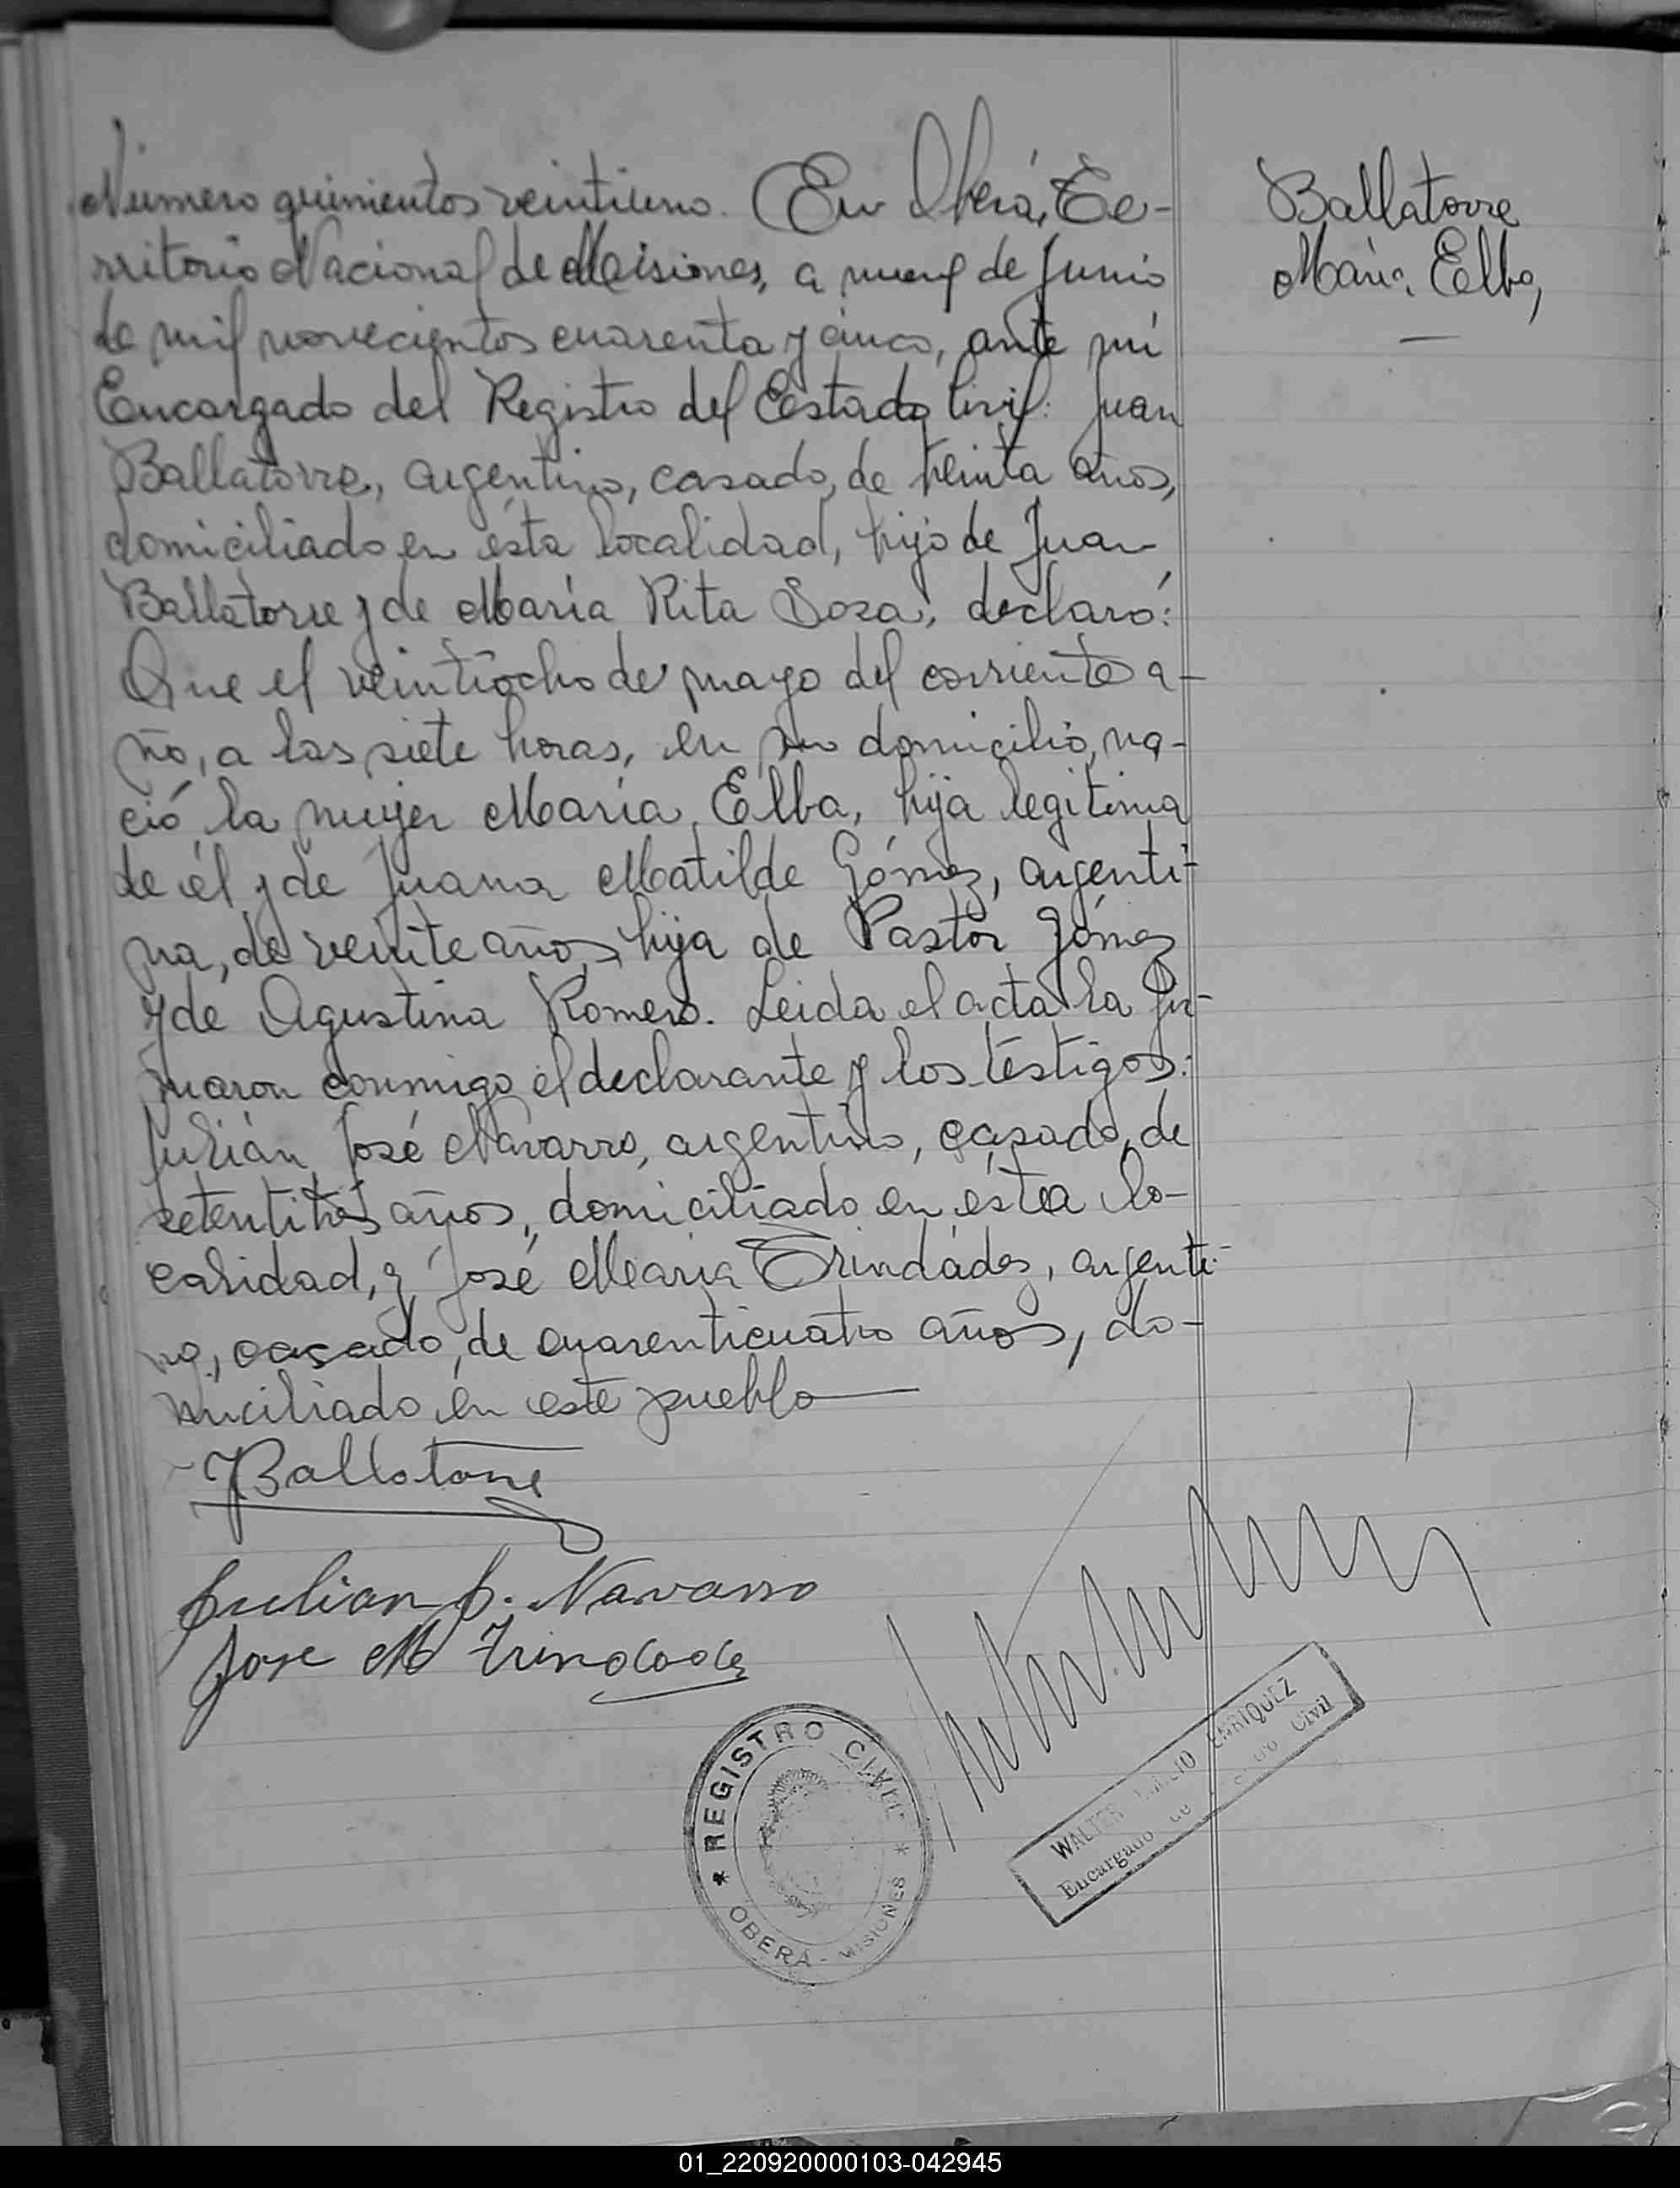 Número quinientos veintiuno. En Oberá, Te-
rritorio Nacional de Misiones, a nueve de Junio
de mil novecientos cuarenta y cinco, ante mí
Encargado del Registro del Estado Civil: Juan
Ballatorre, argentino, casado, de treinta años,
domiciliado en ésta localidad, hijo de Juan
Ballatorre y de María Rita Sosa, declaró:
Que el veintiocho de mayo del corriente a-
ño, a las siete horas, en su domicilio, na-
ció la mujer María Elba, hija legitima
de él y de Juana Matilde Gómez, argenti-
na, de veinte años, hija de Pastor Gómez
y de Agustina Romero. Leida el acta la fir-
maron conmigo el declarante y los testigos:
Julián José Navarro, argentino, casado, de
setentitrés años, domiciliado en ésta lo-
calidad, y José María Trindades, argenti-
no, casado, de cuarenticuatro años, do-
miciliado en este pueblo
Ballatorre
María Elba,
JBallatorre
Julian J. Navarro
Jose M Trindades
REGISTRO CIVIL
OBERÁ - MISIONES
WALTER ENRIQUEZ
Encargado de Civil
01_220920000103-042945